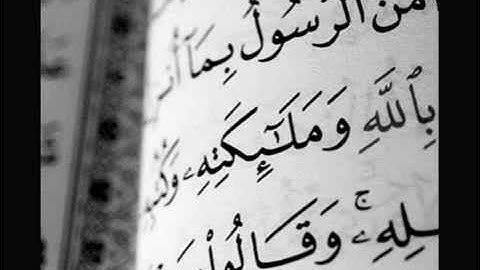 مَنَ ٱلرَّسُولُ بِمَآ أُنز
بِٱللَّهِ وَمَلَـٰٓئِكَتِهِۦ وَكُتُبِهِ
لِهِۦ ۚ وَقَالُوا۟